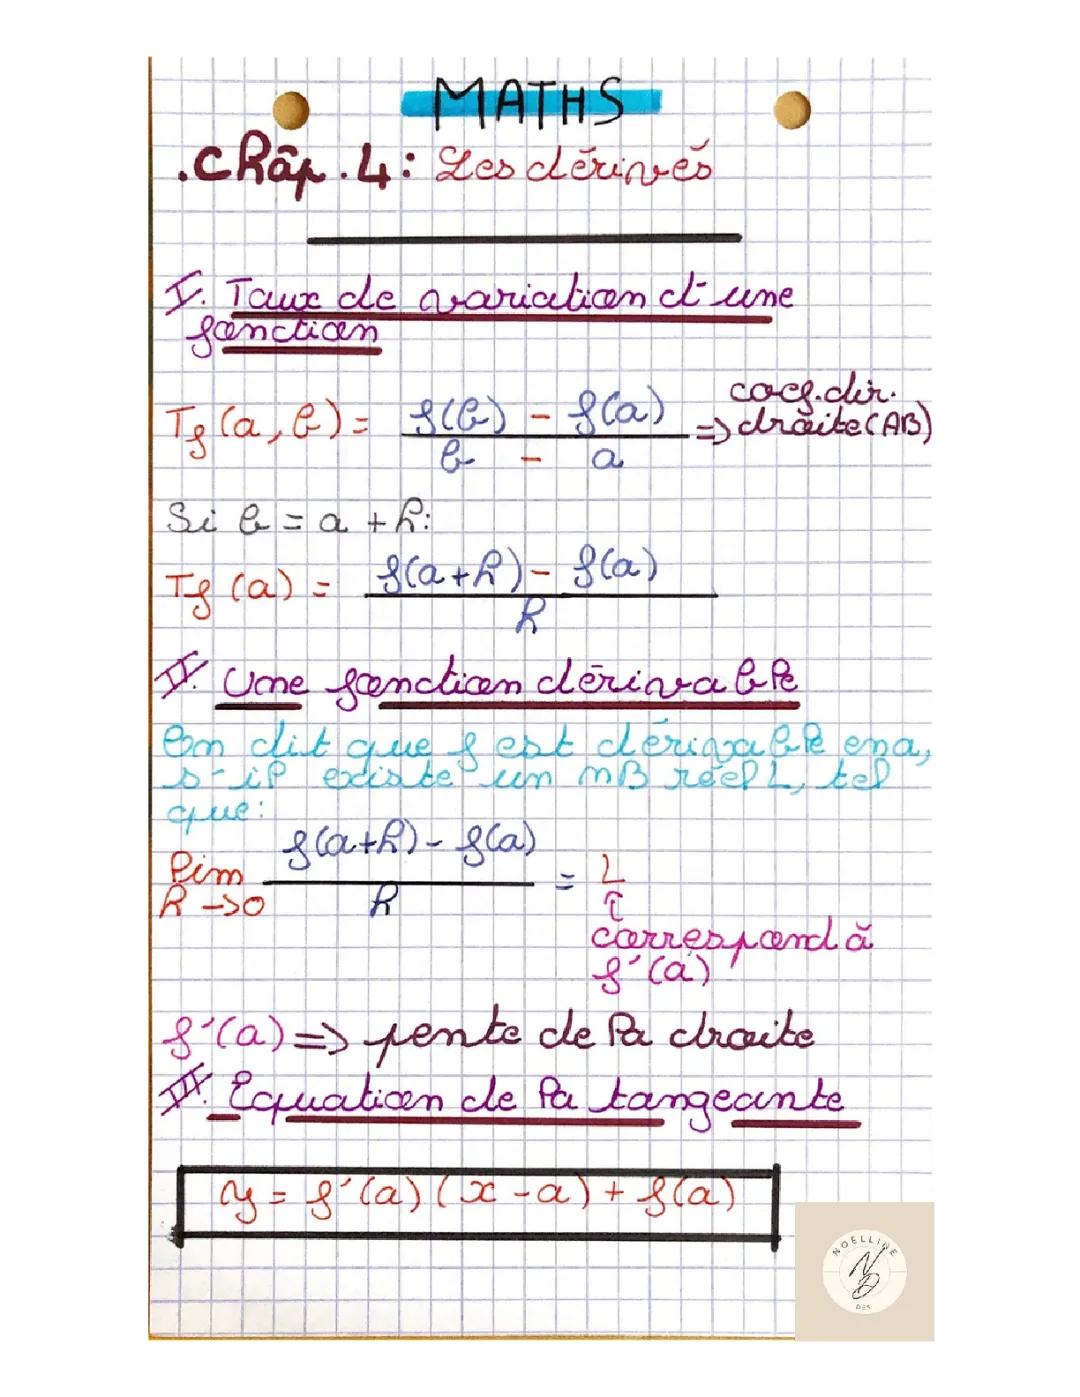 MATHS
.Châp.4: Les dérivés
I. Taux de variation d'une
fonction
Tf (a, b) = f(b) - f(a) / b - a => coef.dir. droite (AB)
Si b = a + h:
Tf (a) = f(a+h) - f(a) / h
II. Une fonction dérivable
On dit que f est dérivable en a,
s'il existe un nB réel L, tel
que:
lim h->0 f(a+h) - f(a) / h = L
↑
correspond à
f'(a)
f'(a) => pente de la droite
III. Equation de la tangeante
y = f'(a) (x - a) + f(a)
NOELLINE
ND
DES